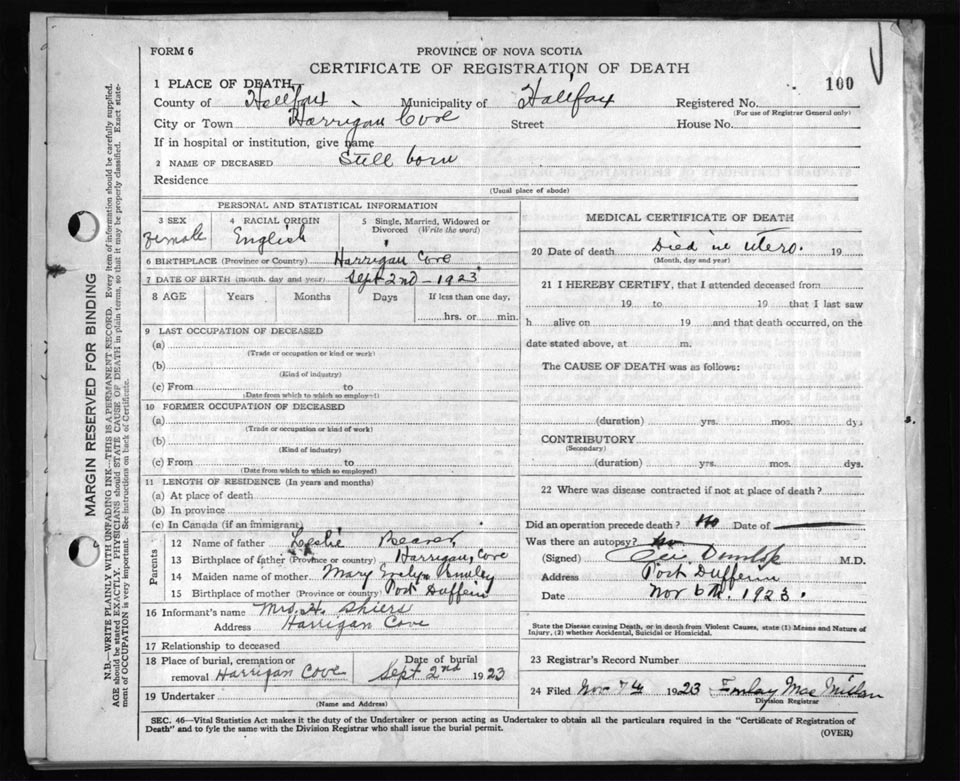 FORM 6
PROVINCE OF NOVA SCOTIA
CERTIFICATE OF REGISTRATION OF DEATH
100
1 PLACE OF DEATH
County of Halifax Municipality of Halifax Registered No.
(For use of Registrar General only)
City or Town Harrigan Cove Street House No.
If in hospital or institution, give name
2 NAME OF DECEASED Still born
Residence
(Usual place of abode)
PERSONAL AND STATISTICAL INFORMATION
3 SEX 4 RACIAL ORIGIN 5 Single, Married, Widowed or
Divorced (Write the word)
Female English
6 BIRTHPLACE (Province or Country) Harrigan Cove
7 DATE OF BIRTH (month, day and year) Sept 2nd - 1923
8 AGE Years Months Days If less than one day,
hrs. or min.
9 LAST OCCUPATION OF DECEASED
(a)
(Trade or occupation or kind or work)
(b)
(Kind of industry)
(c) From to
(Date from which to which so employed)
10 FORMER OCCUPATION OF DECEASED
(a)
(Trade or occupation or kind of work)
(b)
(Kind of industry)
(c) From to
(Date from which to which so employed)
11 LENGTH OF RESIDENCE (In years and months)
(a) At place of death
(b) In province
(c) In Canada (if an immigrant)
Parents
12 Name of father Leslie
13 Birthplace of father (Province or country) Harrigan, Cove
14 Maiden name of mother Mary Evelyn
15 Birthplace of mother (Province or country) Port Dufferin
16 Informant's name Mrs. H. Shiers
Address Harrigan Cove
17 Relationship to deceased
18 Place of burial, cremation or Date of burial
removal Harrigan Cove Sept 2nd 1923
19 Undertaker
(Name and Address)
MEDICAL CERTIFICATE OF DEATH
20 Date of death Died in utero. 19
(Month, day and year)
21 I HEREBY CERTIFY, that I attended deceased from
19 to 19 that I last saw
h alive on 19 and that death occurred, on the
date stated above, at m.
The CAUSE OF DEATH was as follows:
(duration) yrs. mos. dys
CONTRIBUTORY
(Secondary)
(duration) yrs. mos. dys.
22 Where was disease contracted if not at place of death?
Did an operation precede death? No Date of
Was there an autopsy? No
(Signed) Dunlop M.D.
Address Port Dufferin
Date Nov 6th. 1923.
State the Disease causing Death, or in death from Violent Causes, state (1) Means and Nature of
Injury, (2) whether Accidental, Suicidal or Homicidal.
23 Registrar's Record Number
24 Filed Nov 7th 1923 Finlay MacMillan
Division Registrar
SEC. 46—Vital Statistics Act makes it the duty of the Undertaker or person acting as Undertaker to obtain all the particulars required in the "Certificate of Registration of
Death" and to fyle the same with the Division Registrar who shall issue the burial permit.
(OVER)
MARGIN RESERVED FOR BINDING
N.B.—WRITE PLAINLY WITH UNFADING INK—THIS IS A PERMANENT RECORD. Every item of information should be carefully supplied.
AGE should be stated EXACTLY. PHYSICIANS should STATE CAUSE OF DEATH in plain terms, so that it may be properly classified. Exact state-
ment of OCCUPATION is very important. See instructions on back of Certificate.